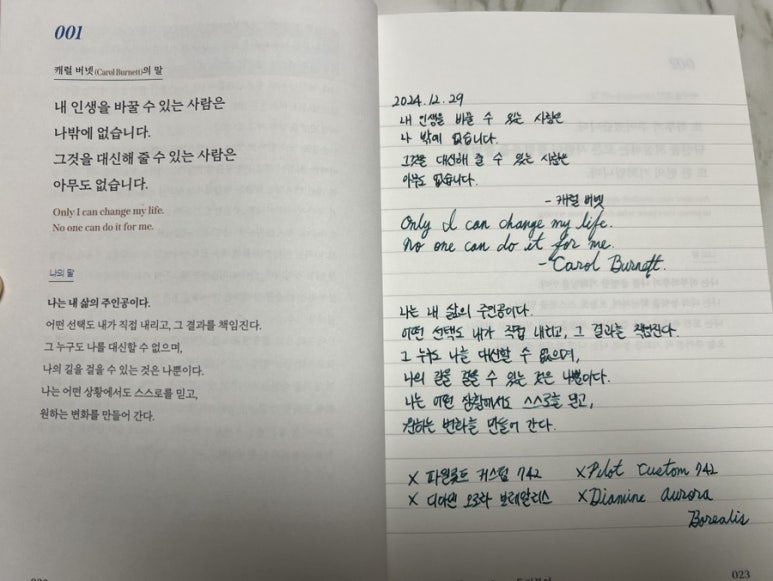 001
캐럴 버넷(Carol Burnett)의 말
내 인생을 바꿀 수 있는 사람은
나밖에 없습니다.
그것을 대신해 줄 수 있는 사람은
아무도 없습니다.
Only I can change my life.
No one can do it for me.
나의 말
나는 내 삶의 주인공이다.
어떤 선택도 내가 직접 내리고, 그 결과를 책임진다.
그 누구도 나를 대신할 수 없으며,
나의 길을 걸을 수 있는 것은 나뿐이다.
나는 어떤 상황에서도 스스로를 믿고,
원하는 변화를 만들어 간다.
2024.12.29
내 인생을 바꿀 수 있는 사람은
나 밖에 없습니다.
그것을 대신해 줄 수 있는 사람은
아무도 없습니다.
- 캐럴 버넷
Only I can change my life.
No one can do it for me.
- Carol Burnett.
나는 내 삶의 주인공이다.
어떤 선택도 내가 직접 내리고, 그 결과는 책임진다
그 누구도 나를 대신할 수 없으며,
나의 길을 걸을 수 있는 것은 나뿐이다.
나는 어떤 상황에서도 스스로를 믿고,
원하는 변화를 만들어 간다.
× 파일로트 커스텀 742
× 디아민 오로라 보레알리스
× Pilot Custom 742
× Diamine Aurora
Borealis
023